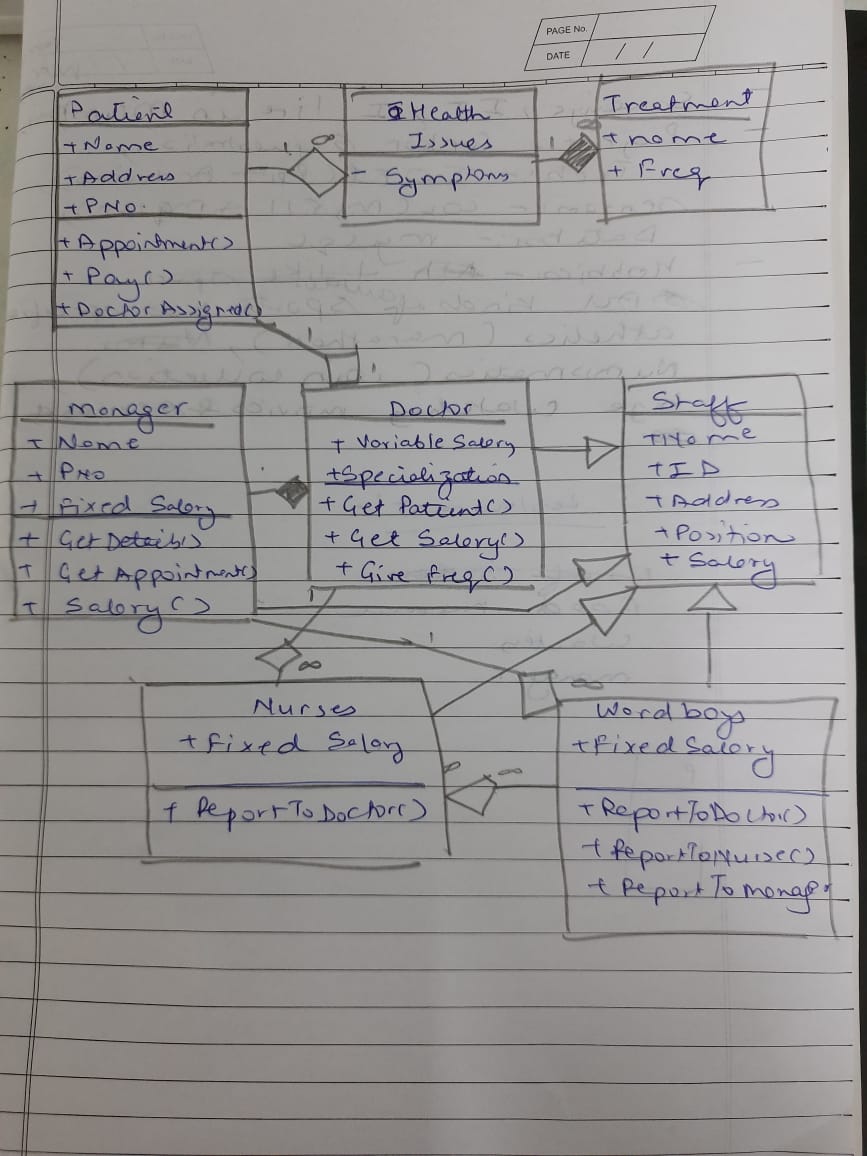 PAGE No.
DATE / /
Patient
+ Name
+ Address
+ PNo.
+ Appointment()
+ Pay()
+ Doctor Assigned()
1 ∞
Health
Issues
- Symptoms
1 ∞
Treatment
+ name
+ Freq
1
1
Manager
+ Name
+ PNo
+ Fixed Salary
+ Get Details()
+ Get Appointment()
+ Salary()
Doctor
+ Variable Salary
+ Specialization
+ Get Patient()
+ Get Salary()
+ Give freq()
Staff
+ Name
+ ID
+ Address
+ Position
+ Salary
1
∞
1
∞
Nurses
+ Fixed Salary
+ ReportToDoctor()
∞ ∞
Wordboys
+ Fixed Salary
+ ReportToDoctor()
+ ReportToNurse()
+ Report To manag